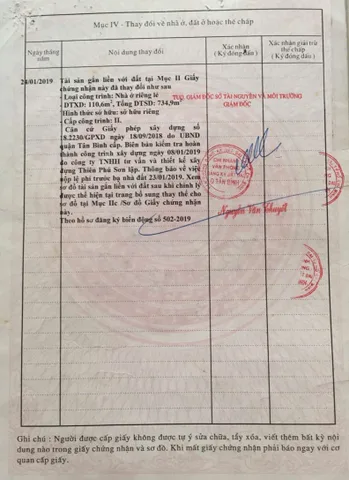 Mục IV - Thay đổi về nhà ở, đất ở hoặc thế chấp
Ngày tháng năm
Nội dung thay đổi
Xác nhận
( Ký đóng dấu )
Xác nhận giải trừ thế chấp
( Ký đóng dấu )
24/01/2019
Tài sản gắn liền với đất tại Mục II Giấy
chứng nhận này đã thay đổi như sau
- Loại công trình: Nhà ở riêng lẻ
- DTXD: 110,6m², Tổng DTSD: 734,9m²
- Hình thức sở hữu: sở hữu riêng
- Cấp công trình: II.
Căn cứ Giấy phép xây dựng số
8.2230/GPXD ngày 18/09/2018 do UBND
quận Tân Bình cấp. Biên bản kiểm tra hoàn
thành công trình xây dựng ngày 08/01/2019
do công ty TNHH tư vấn và thiết kế xây
dựng Thiên Phú Sơn lập. Thông báo về việc
nộp lệ phí trước bạ nhà đất 23/01/2019. Xem
sơ đồ tài sản gắn liền với đất sau khi chỉnh lý
được thể hiện tại trang bổ sung thay thế cho
sơ đồ tại Mục IIc /Sơ đồ Giấy chứng nhận
này.
Theo hồ sơ đăng ký biến động số 502-2019
TUQ. GIÁM ĐỐC SỞ TÀI NGUYÊN VÀ MÔI TRƯỜNG
GIÁM ĐỐC
CHI NHÁNH
VĂN PHÒNG
ĐĂNG KÝ ĐẤT ĐAI
Q.TÂN BÌNH
Nguyễn Văn Khuyết
Ghi chú : Người được cấp giấy không được tự ý sửa chữa, tẩy xóa, viết thêm bất kỳ nội
dung nào trong giấy chứng nhận và sơ đồ. Khi mất giấy chứng nhận phải báo ngay với cơ
quan cấp giấy.